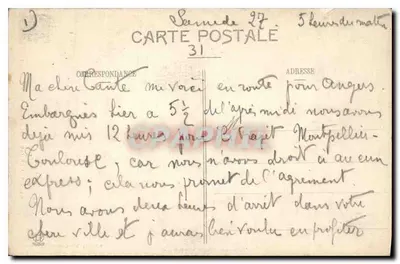 1
Samedi 27. 5 heures du matin
CARTE POSTALE
31
CORRESPONDANCE ADRESSE
Ma chère Tante me voici en route pour Angers
Embarqués hier à 5 1/2 de l'après midi nous avons
déjà mis 12 heures pour le trajet Montpellier-
Toulouse, car nous n'avons droit à aucun
express; cela nous promet de l'agrément
Nous avons deux heures d'arrêt dans votre
chère ville et j'aurais bien voulu en profiter